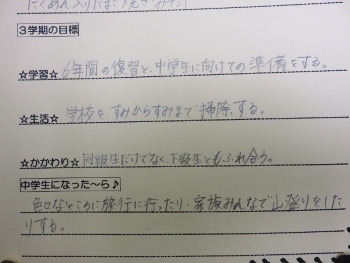 たくあん入りたこ焼きみたい
3学期の目標
☆学習☆ 6年間の復習と、中学生に向けての準備をする。
☆生活☆ 学校をすみからすみまで掃除する。
☆かかわり☆ 同級生だけでなく、下級生ともふれ合う。
中学生になった〜ら♪
色々なところに旅行に行ったり、家族みんなで山登りをした
りする。